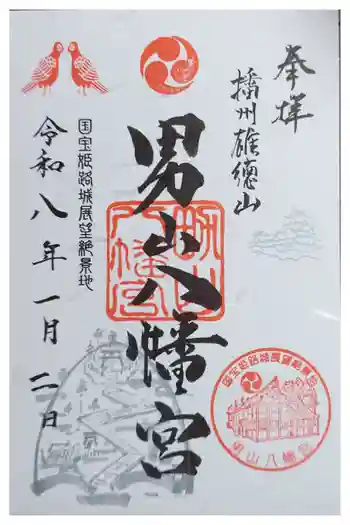 奉拝
播州雄徳山
男山八幡宮
男山
八幡宮
国宝姫路城展望絶景地
令和八年一月二日
国宝姫路城展望絶景地
男山八幡宮